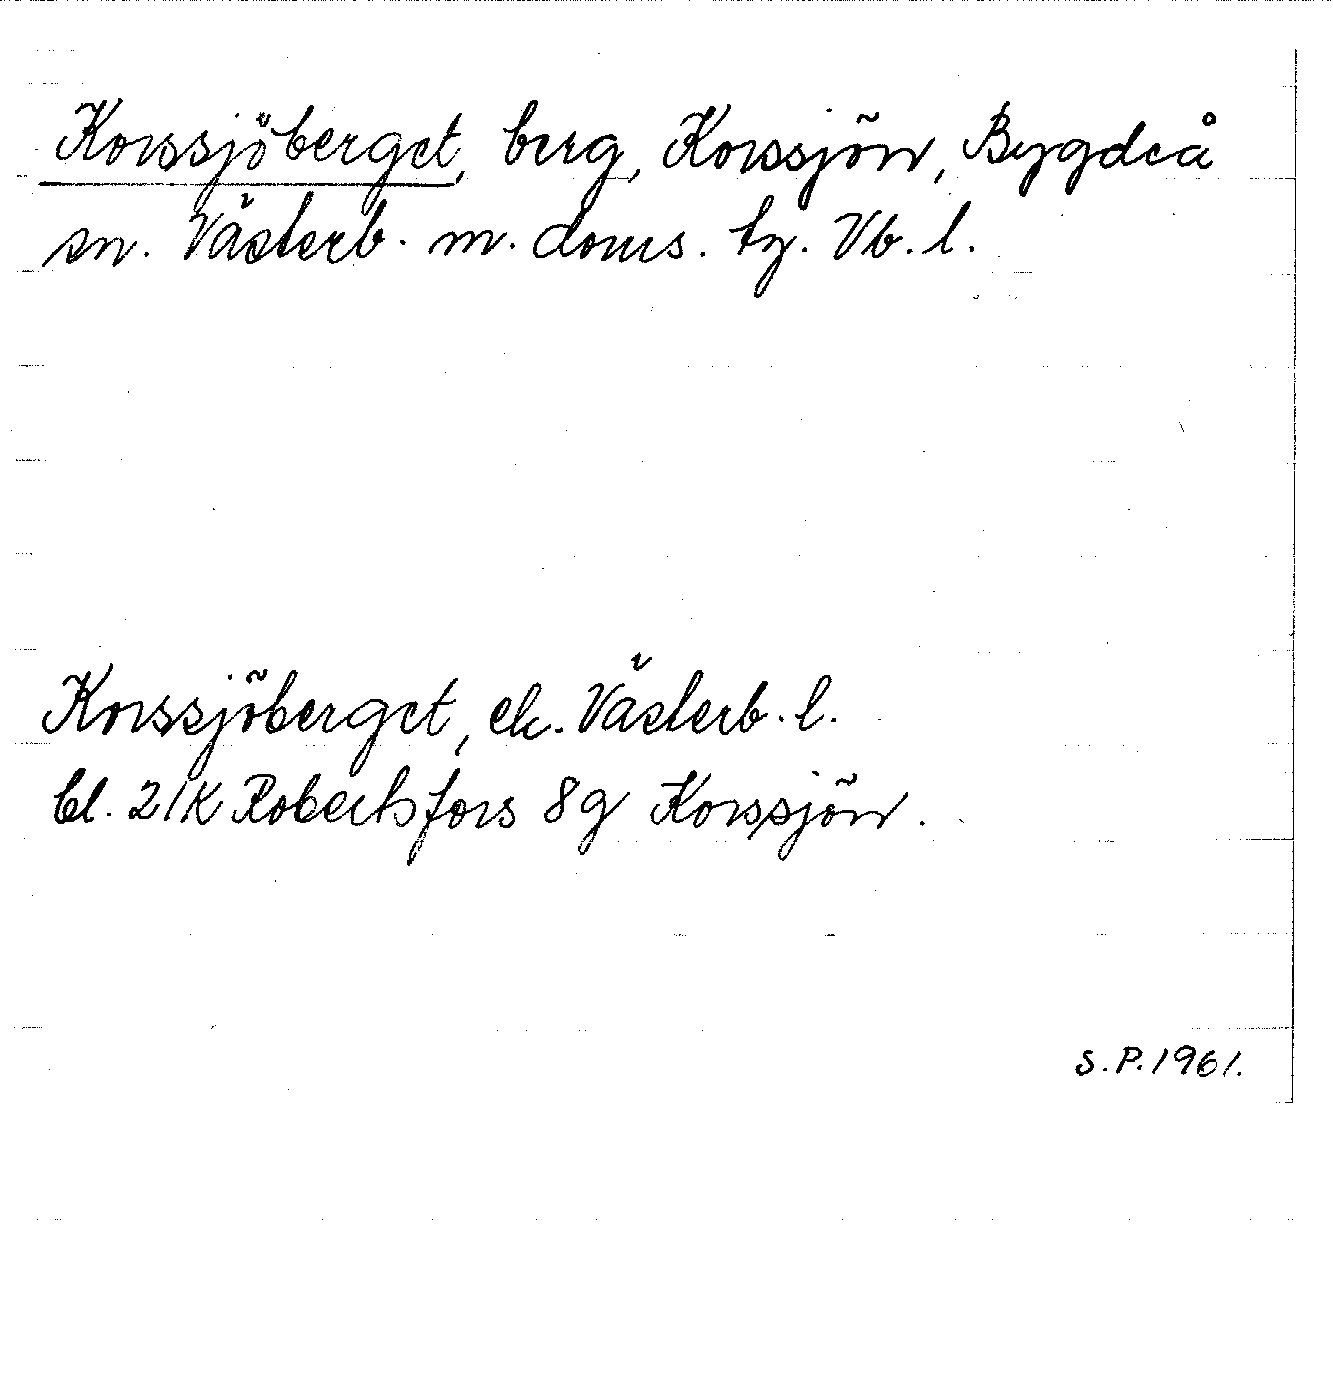 Korssjöberget, berg, Korssjön, Bygdeå
sn. Västerb. m. doms. tg. Vb. l.
Korssjöberget, ek. Västerb. l.
bl. 21K Robertsfors 8g Korssjön.
S.P. 1961.